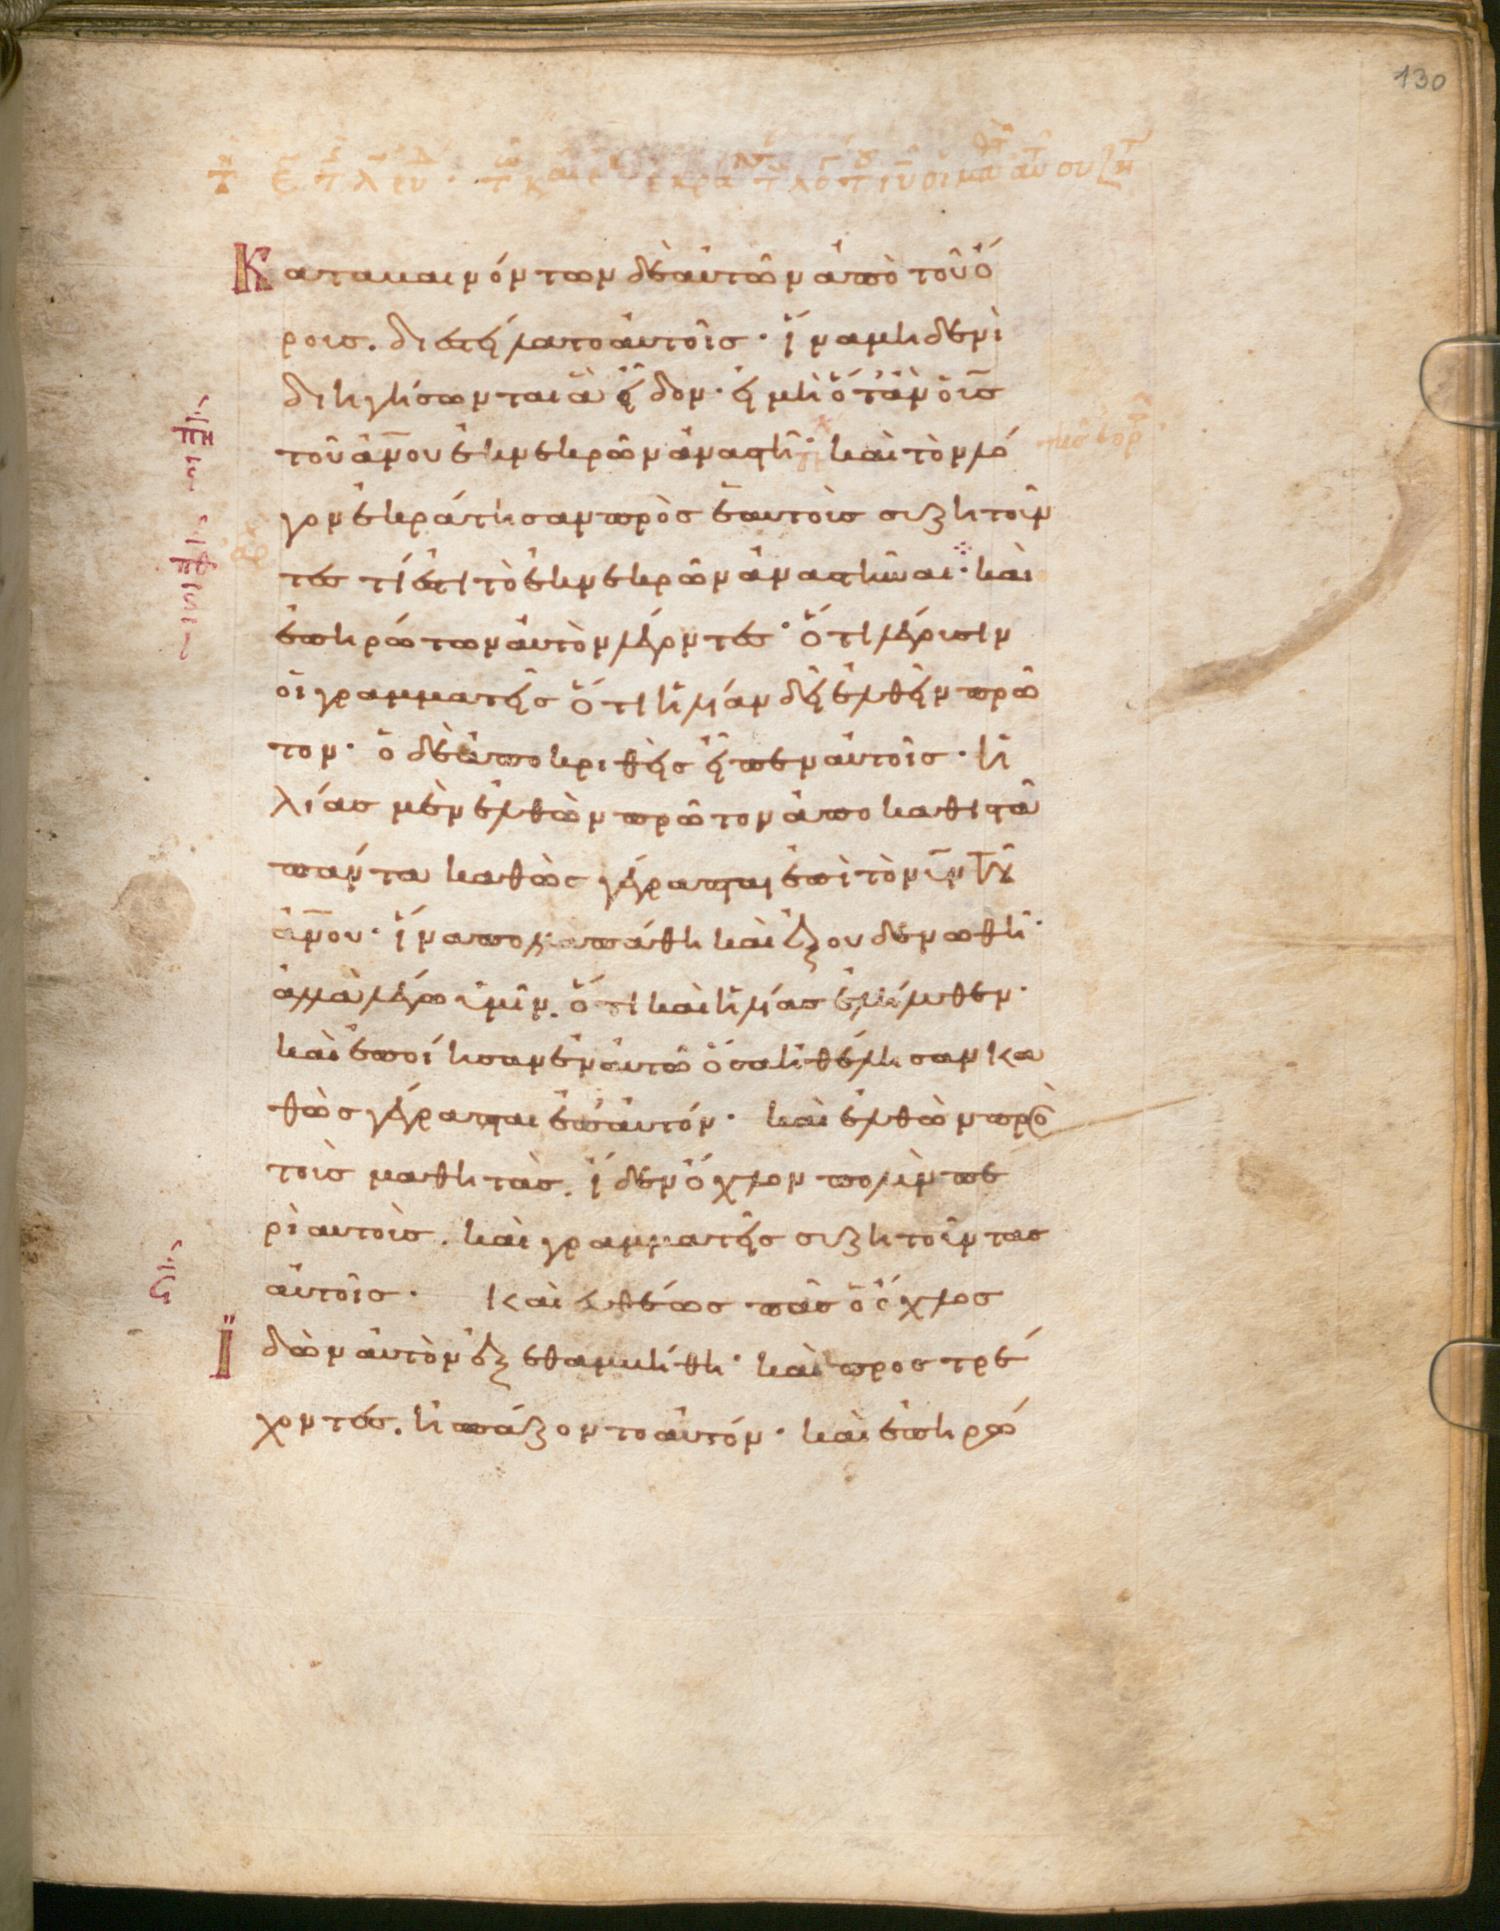 130
Καταβαινόντων δὲ αὐτῶν ἀπὸ τοῦ ὄ
ρους. διεστείλατο αὐτοῖς· ἵνα μηδενὶ
διηγήσωνται ἃ εἶδον· εἰ μὴ ὅταν ὁ υ̅ς̅
τοῦ ἀν̅ου ἐκ νεκρῶν ἀναστῆ· καὶ τὸν λό
γον ἐκράτησαν πρὸς ἑαυτοὺς συζητοῦν
τες τί ἐστι τὸ ἐκ νεκρῶν ἀναστῆναι· καὶ
ἐπηρώτων αὐτὸν λέγοντες· ὅτι λέγουσιν
οἱ γραμματεῖς ὅτι ἠλίαν δεῖ ἐλθεῖν πρῶ
τον· ὁ δὲ ἀποκριθεὶς εἶπεν αὐτοῖς· ἠ
λίας μὲν ἐλθὼν πρῶτον ἀποκαθιστᾶ
πάντα καθὼς γέγραπται ἐπὶ τὸν υ̅ν̅ τοῦ
ἀν̅ου· ἵνα πολλὰ πάθη καὶ ἐξουδενωθῆ·
ἀλλὰ λέγω ὑμῖν. ὅτι καὶ ἠλίας ἐλήλυθεν·
καὶ ἐποίησαν ἐν αὐτῶ ὅσα ἠθέλησαν κα
θὼς γέγραπται ἐπ' αὐτόν· καὶ ἐλθὼν πρὸ
τοὺς μαθητὰς. ἴδεν ὄχλον πολὺν πε
ρὶ αὐτοὺς. καὶ γραμματεῖς συζητοῦντας
αὐτοῖς· Καὶ εὐθέως πᾶς ὁ ὄχλος
Ϊδὼν αὐτὸν ἐξεθαμβήθη· καὶ προστρέ
χοντες. ἠσπάζοντο αὐτόν· καὶ ἐπηρώ